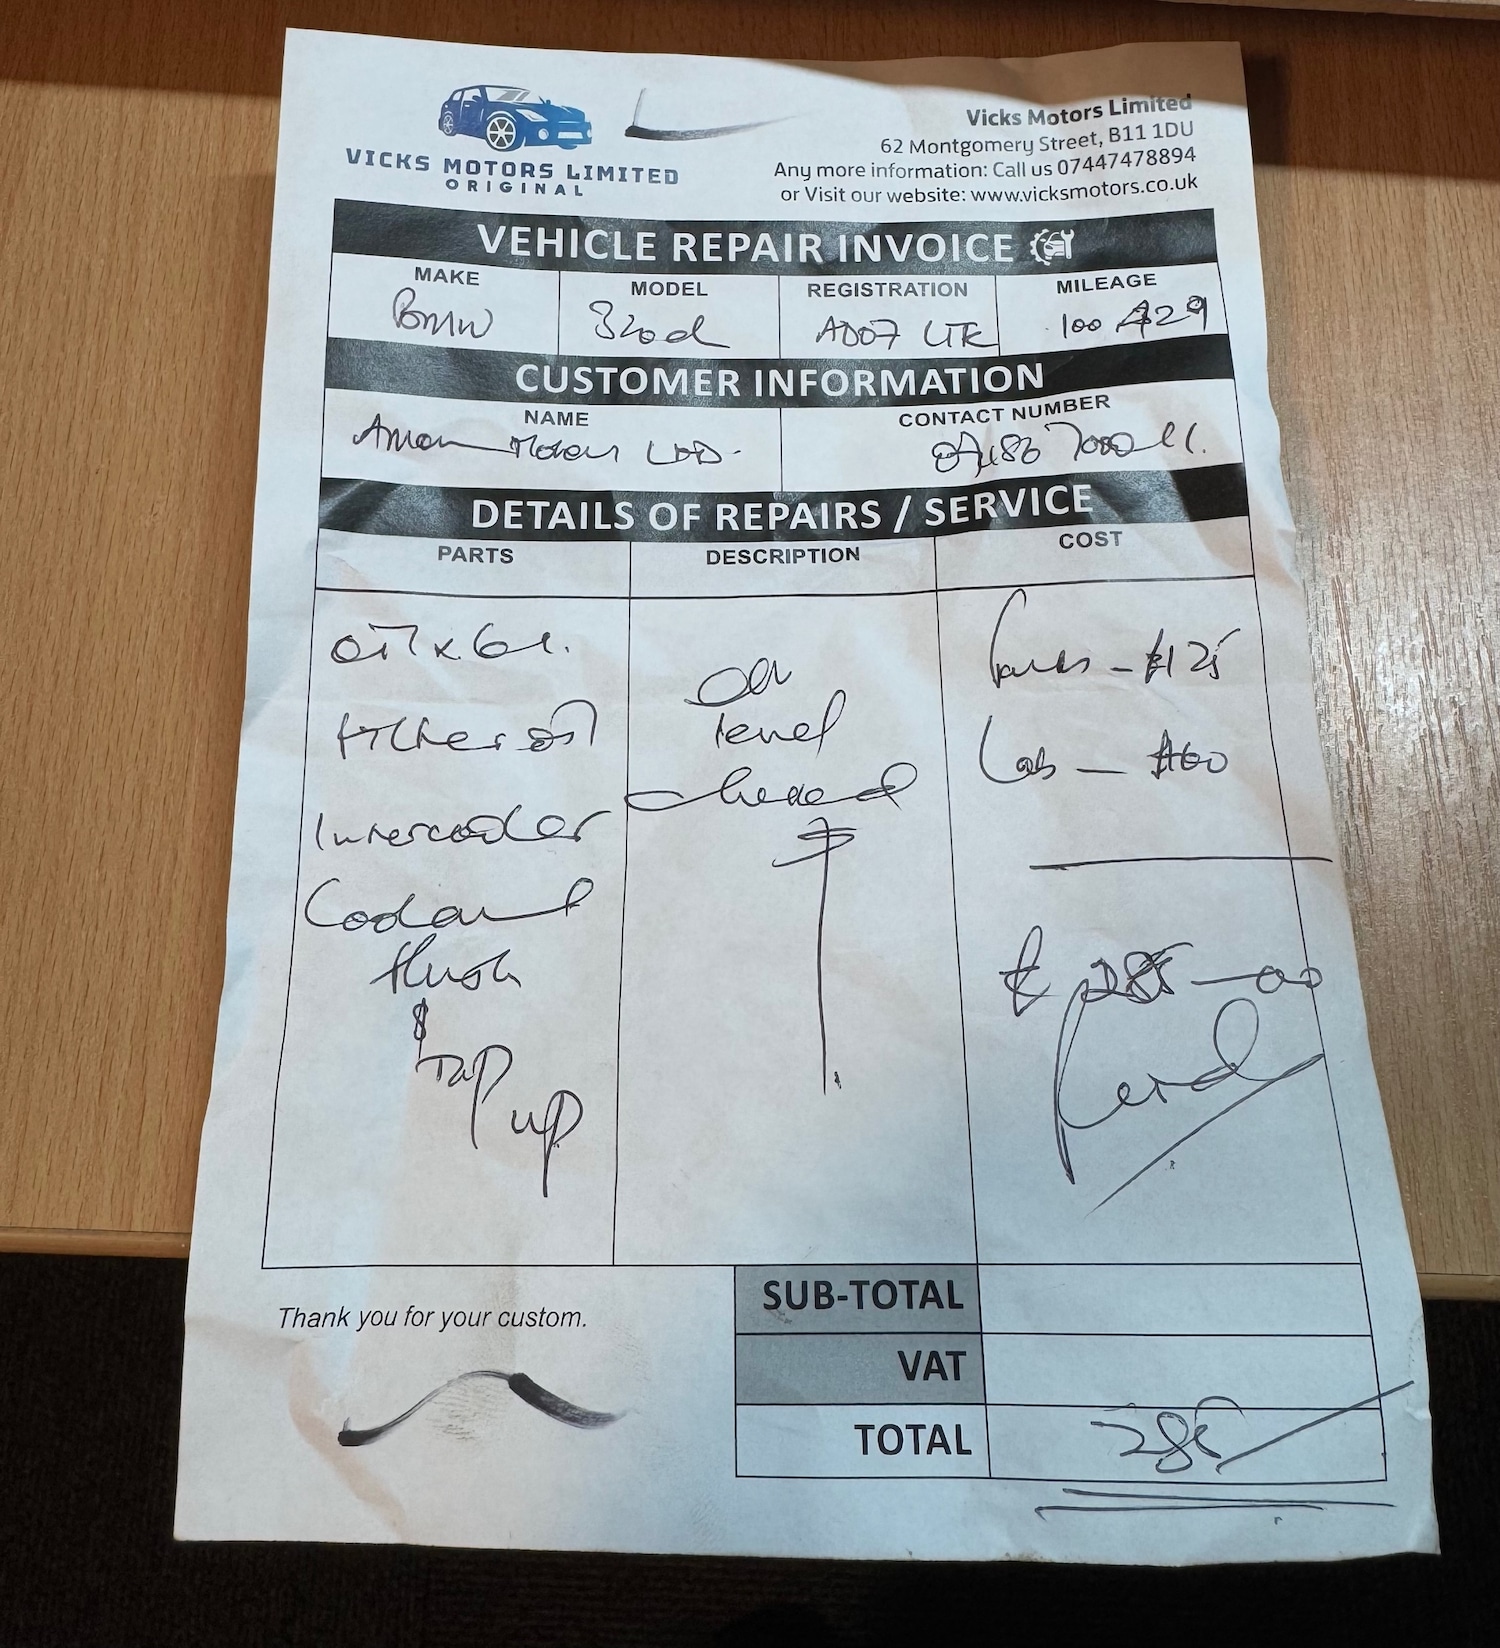 VICKS MOTORS LIMITED
ORIGINAL
Vicks Motors Limited
62 Montgomery Street, B11 1DU
Any more information: Call us 07447478894
or Visit our website: www.vicksmotors.co.uk
VEHICLE REPAIR INVOICE
MAKE MODEL REGISTRATION MILEAGE
BMW 320d AD07 100
CUSTOMER INFORMATION
NAME CONTACT NUMBER
Aman Motors LTD.
DETAILS OF REPAIRS / SERVICE
PARTS DESCRIPTION COST
oil x 6L.
filter oil
Intercooler
Coolant
flush
&
Top
up
Oil
level
checked
Parts - £125
Lab - £60
£ 285-00
Paid
Thank you for your custom.
SUB-TOTAL
VAT
TOTAL 285